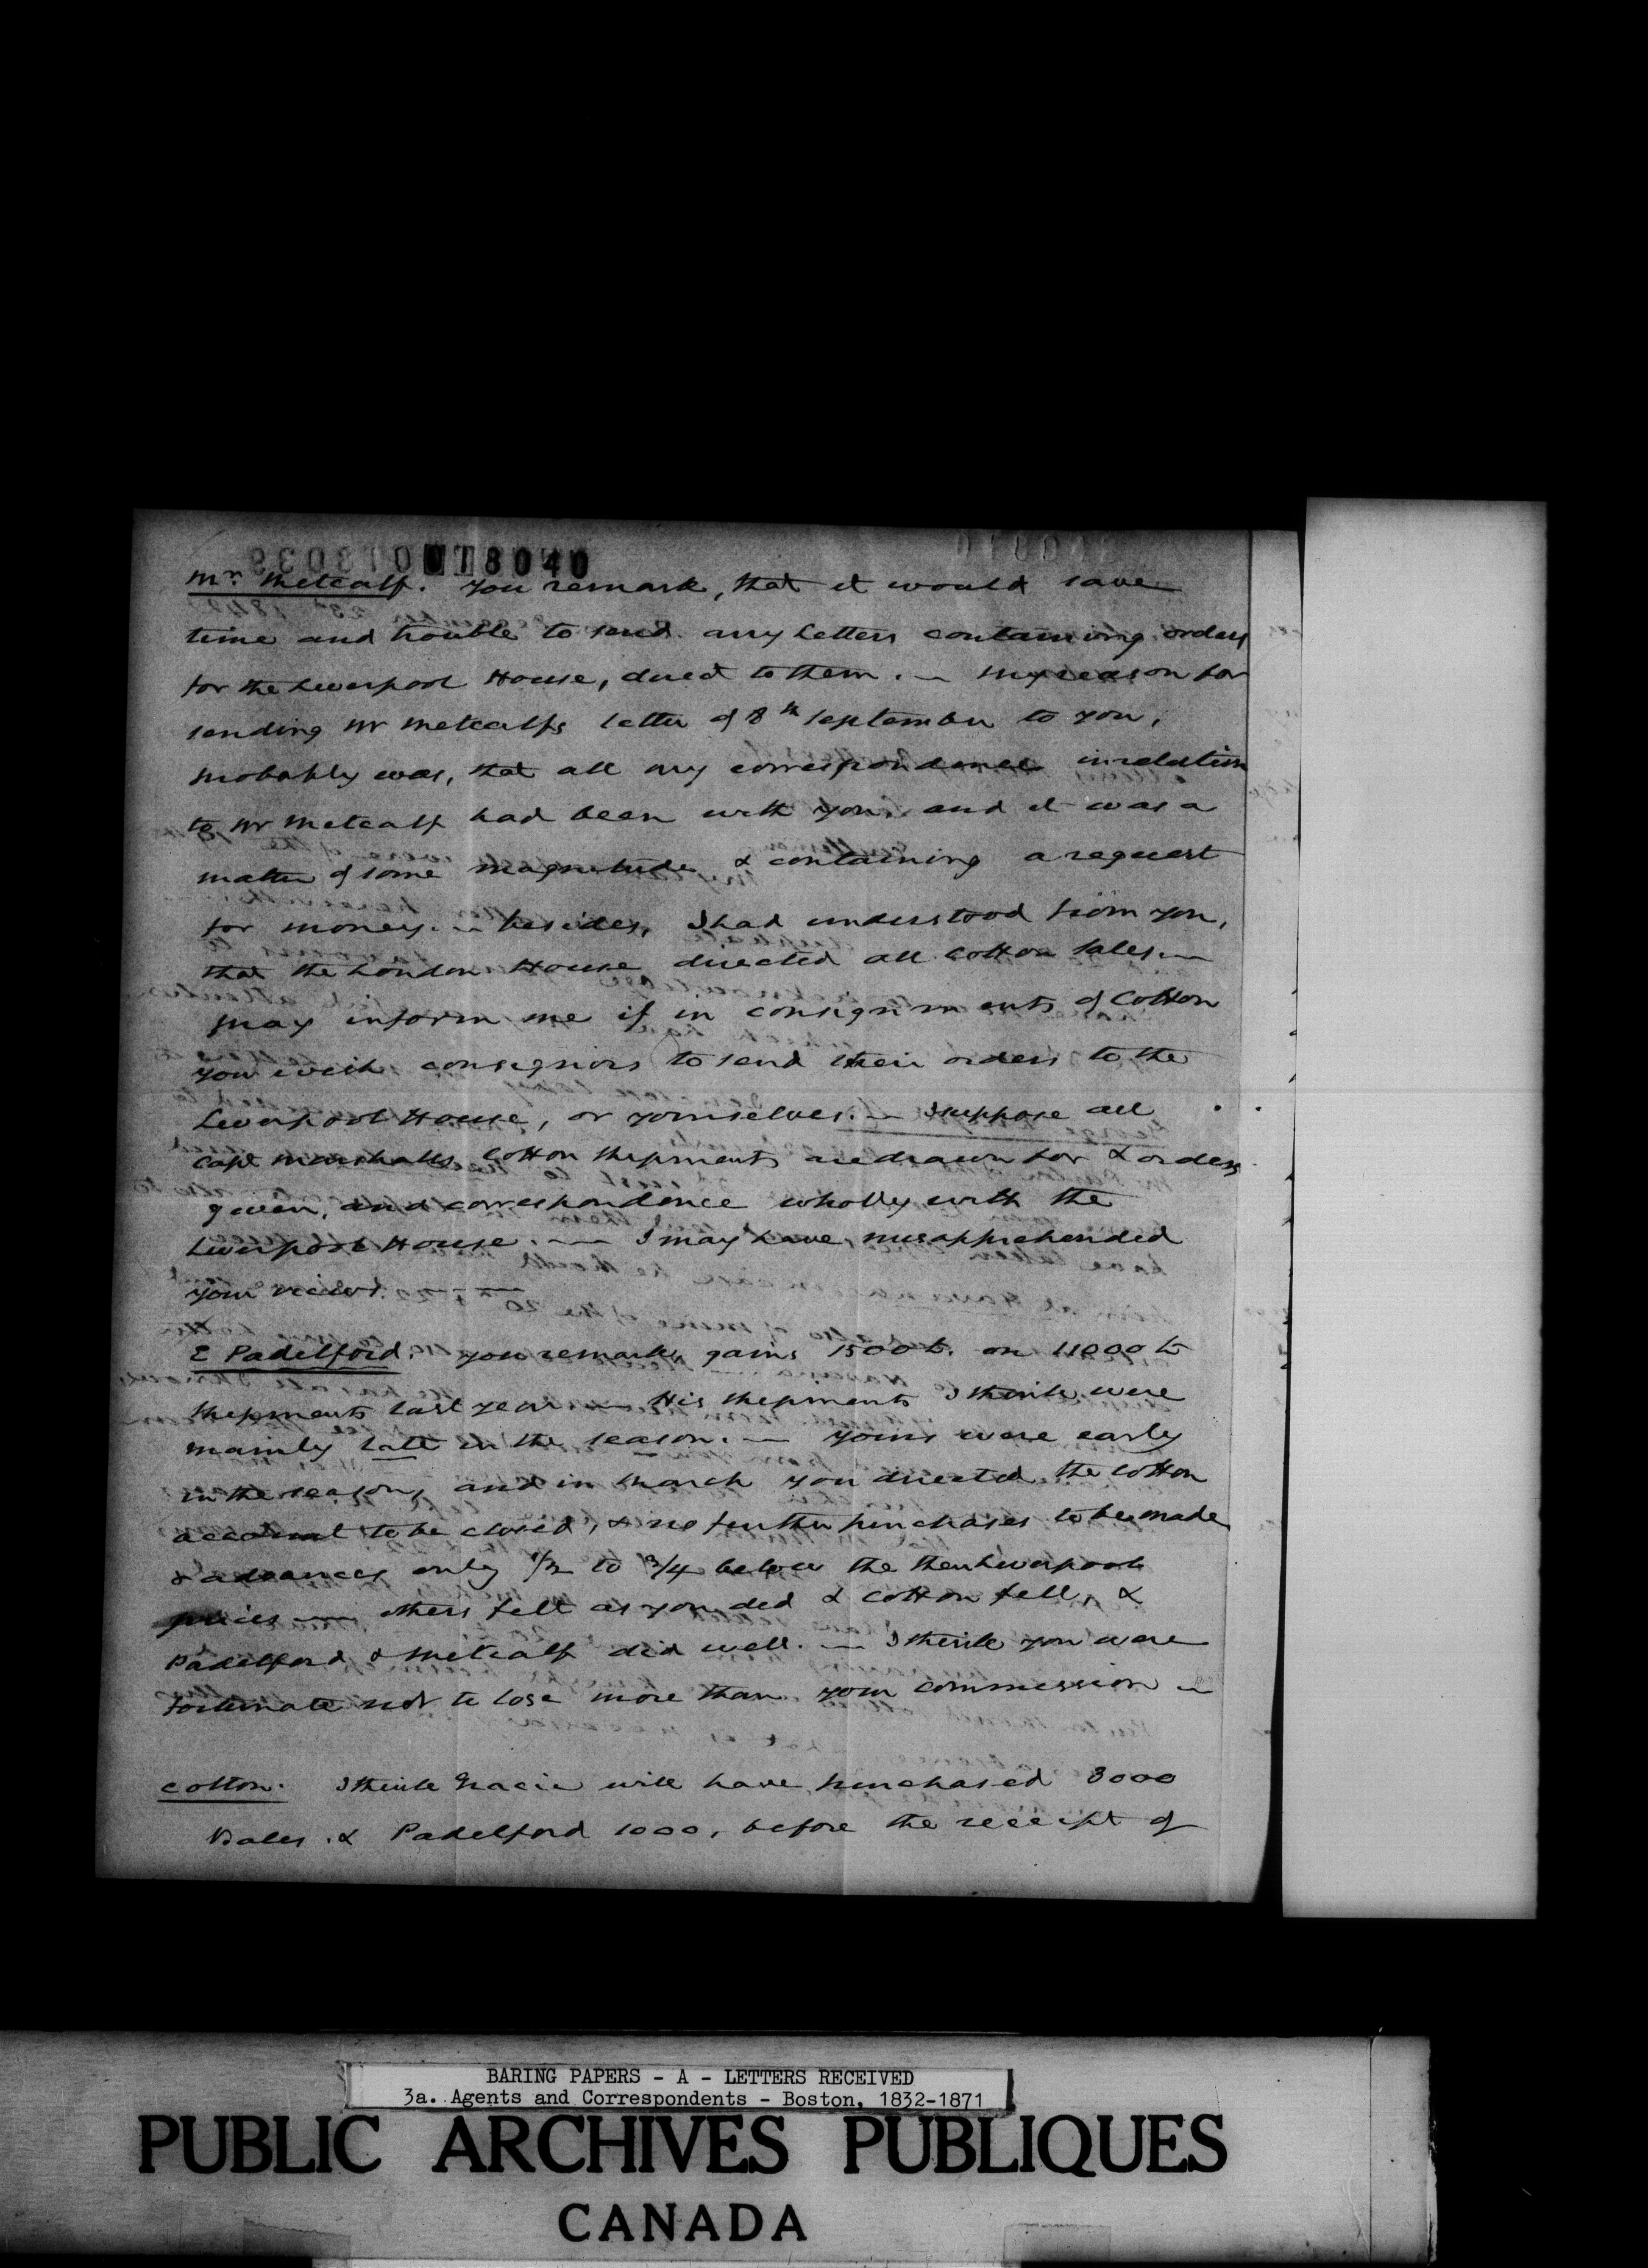 018040
Mr. Metcalf. You remark, that it would save
time and trouble to send any letters containing orders
for the Liverpool House, direct to them. — My reason for
sending Mr Metcalfs letter of 8th September to you,
probably was, that all my correspondence in relation
to Mr Metcalf had been with you, and it was a
matter of some magnitude & containing a request
for money. — besides, I had understood from you,
that the London House directed all cotton sales. —
may inform me if in consignments of Cotton
you wish consignors to send their orders to the
Liverpool House, or yourselves. — I suppose all
Capt Marshalls cotton shipments are drawn for & orders
given, and correspondence wholly with the
Liverpool House. — I may have misapprehended
your views.
E Padelford. You remark, gains 1500 b. on 11000 b
shipments last year — His shipments I think were
mainly late in the season. — Yours were early
in the season, and in March you directed the cotton
account to be closed, & no further purchases to be made
& advances only 1/2 to 3/4 below the then Liverpool
prices — others felt as you did & cotton fell, &
Padelford & Metcalf did well. — I think you were
fortunate not to lose more than your commission —
Cotton. I think Gracie will have purchased 3000
Bales. & Padelford 1000, before the receipt of
BARING PAPERS - A - LETTERS RECEIVED
3a. Agents and Correspondents - Boston, 1832-1871
PUBLIC ARCHIVES PUBLIQUES
CANADA